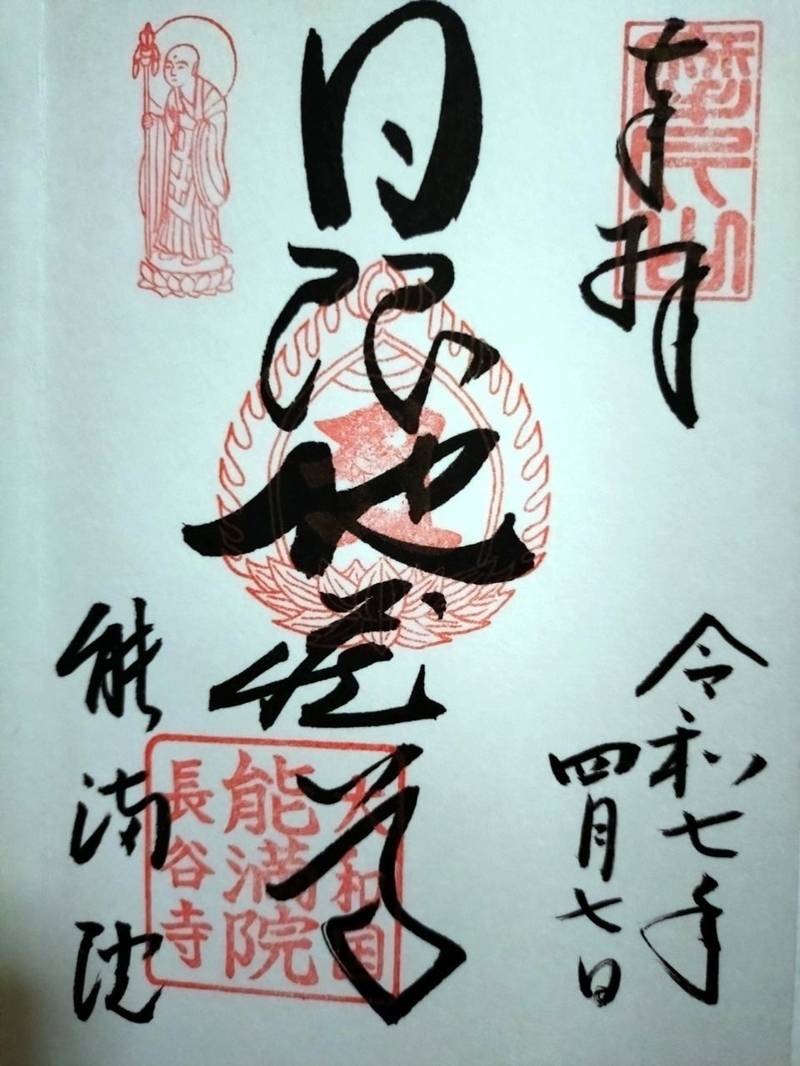 奉拝
令和七年
四月七日
日限地蔵尊
能満院
大和国
能満院
長谷寺